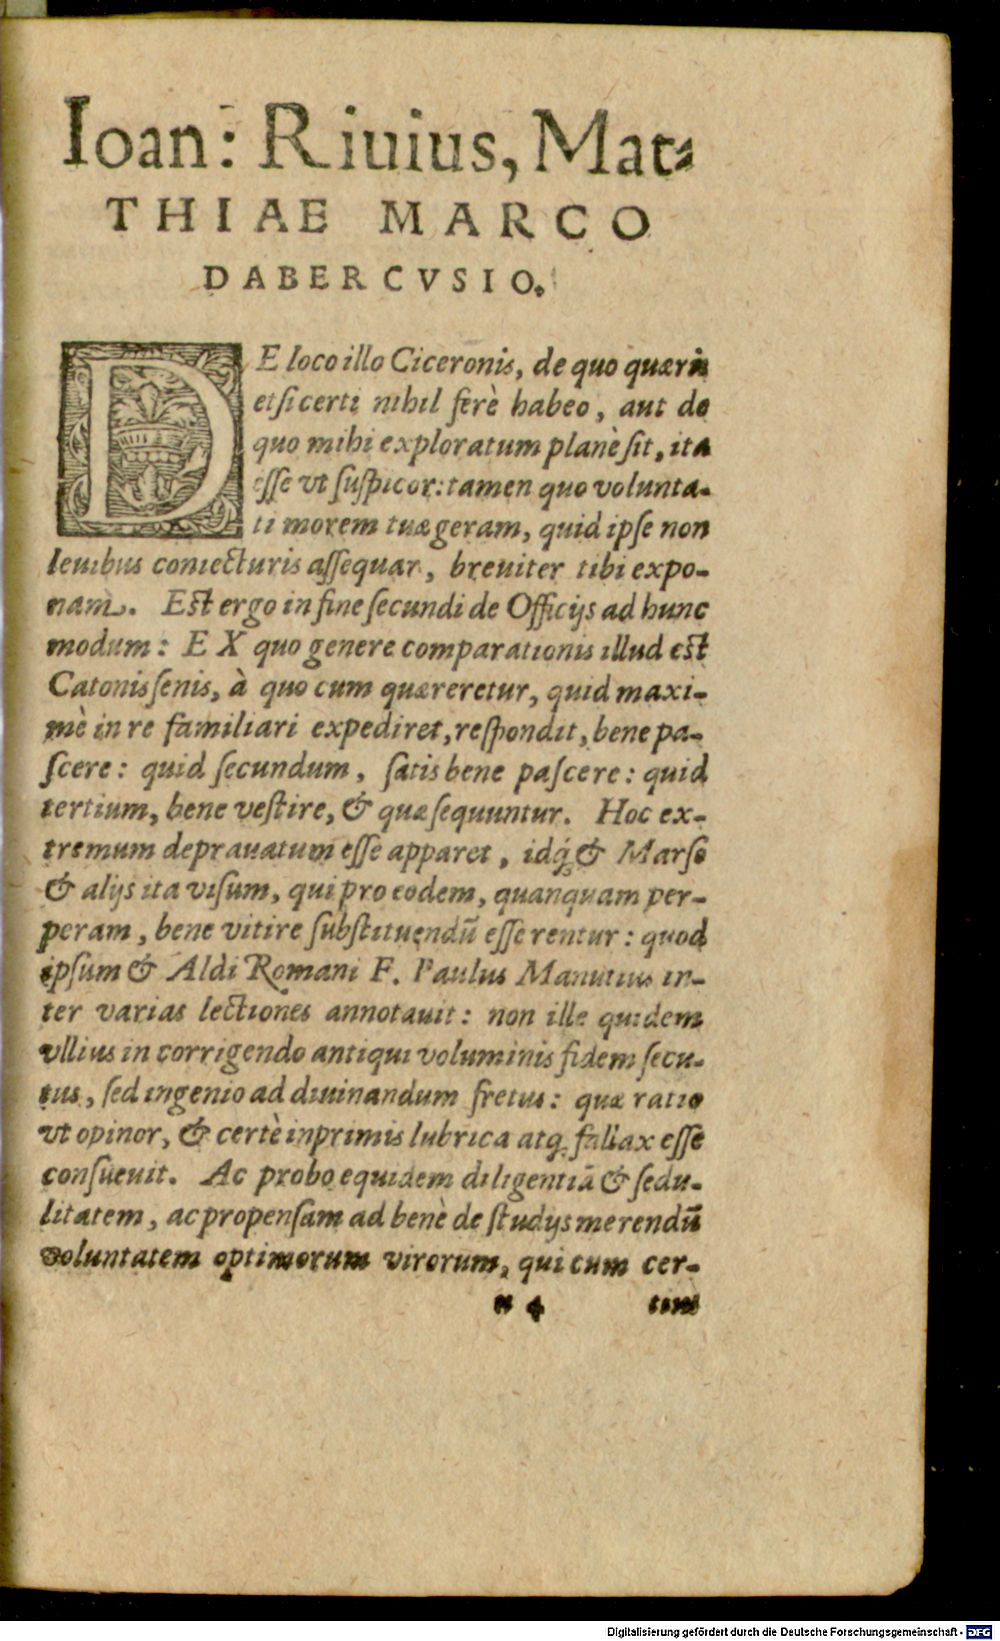 Ioan: Riuius, Mat-
THIAE MARCO
DABERCVSIO.
DE loco illo Ciceronis, de quo quæris
etsi certi nihil ferè habeo, aut de
quo mihi exploratum planè sit, ita
esse vt suspicor: tamen quo volunta-
ti morem tuæ geram, quid ipse non
leuibus coniecturis assequar, breuiter tibi expo-
nam. Est ergo in fine secundi de Officijs ad hunc
modum: EX quo genere comparationis illud est
Catonis senis, à quo cum quæreretur, quid maxi-
mè in re familiari expediret, respondit, bene pa-
scere: quid secundum, satis bene pascere: quid
tertium, bene vestire, & quæ sequuntur. Hoc ex-
tremum deprauatum esse apparet, idq́; & Marso
& alijs ita visum, qui pro eodem, quanquam per-
peram, bene vitire substituendũ esse rentur: quod
ipsum & Aldi Romani F. Paulus Manutius in-
ter varias lectiones annotauit: non ille quidem
vllius in corrigendo antiqui voluminis fidem secu-
tus, sed ingenio ad diuinandum fretus: quæ ratio
vt opinor, & certè inprimis lubrica atq; fallax esse
consueuit. Ac probo equidem diligentiã & sedu-
litatem, ac propensam ad benè de studijs merendũ
voluntatem optimorum virorum, qui cum cer-
n 4 tum
Digitalisierung gefördert durch die Deutsche Forschungsgemeinschaft - DFG